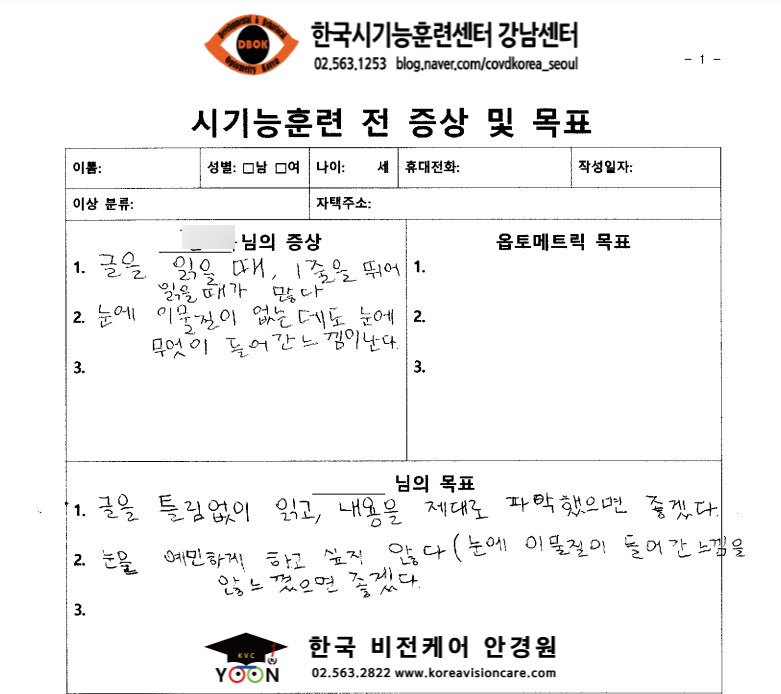 Developmental & Behavioral
DBOK
Optometry Korea
한국시기능훈련센터 강남센터
02.563.1253 blog.naver.com/covdkorea_seoul
- 1 -
시기능훈련 전 증상 및 목표
이름: 성별: □남 □여 나이: 세 휴대전화: 작성일자:
이상 분류: 자택주소:
님의 증상
1. 글을 읽을 때, 1줄을 뛰어
읽을때가 많다
2. 눈에 이물질이 없는데도 눈에
무엇이 들어간느낌이난다.
3.
옵토메트릭 목표
1.
2.
3.
님의 목표
1. 글을 틀림없이 읽고, 내용을 제대로 파악했으면 좋겠다.
2. 눈을 예민하게 하고 싶지 않다 (눈에 이물질이 들어간느낌을
않느꼈으면 좋겠다.
3.
KVC
YOON
한국 비전케어 안경원
02.563.2822 www.koreavisioncare.com